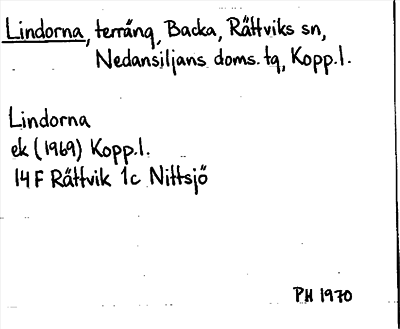 Lindorna, terräng, Backa, Rättviks sn,
Nedansiljans doms. tg, Kopp.l.
Lindorna
ek (1969) Kopp.l.
14 F Rättvik 1c Nittsjö
PH 1970